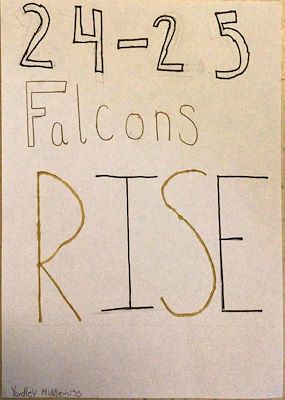 24-25
Falcons
RISE
Yardley